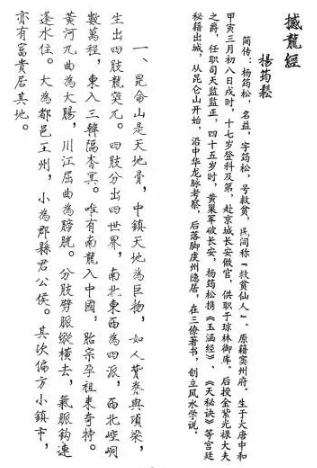 撼龍經
楊筠鬆
简传：杨筠松，名益，字筠松，号救贫，民间称“救贫仙人”。原籍窦州府。生于大唐中和
甲寅三月初八日戌时，十七岁登科及第，赴京城长安做官，供职于琼林御库。后授金紫光禄大夫
之爵，任职司天监监正，四十五岁时，黄巢军破长安，杨筠松携《玉函经》、《天秘诀》等宫廷
秘籍出城，从昆仑山开始，沿中华龙脉考察，后落脚虔州隐居，在三僚著书，创立风水学说。
一、昆侖山是天地骨，中鎮天地為巨物，如人背脊與項梁，
生出四肢龍突兀。四肢分出四世界，南北東西為四派，西北崆峒
數萬程，東入三韓隔杳冥。唯有南龍入中國，胎宗孕祖來奇特。
黃河九曲為大腸，川江屈曲為膀胱。分肢劈脈縱橫去，氣脈鉤連
逢水住。大為都邑王州，小為郡縣君公侯。其次偏方小鎮市，
亦有富貴居其地。